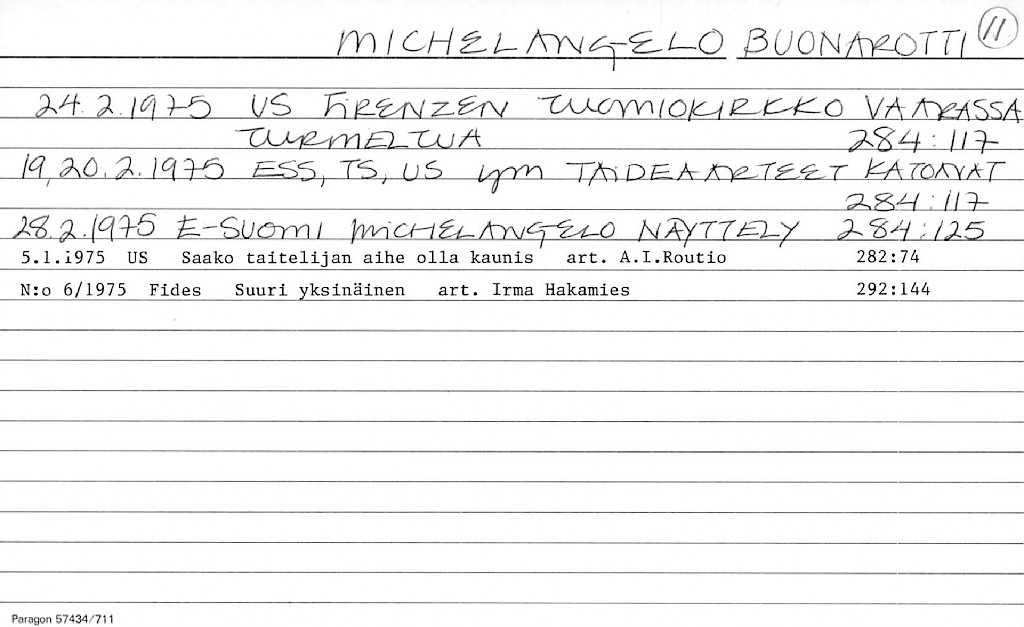 MICHELANGELO BUONAROTTI 11
24.2.1975 US FIRENZEN TUOMIOKIRKKO VAARASSA
TURMELTUA 284:117
19,20.2.1975 ESS, TS, US ym TAIDEAARTEET KATOAVAT
284:117
28.2.1975 E-SUOMI MICHELANGELO NÄYTTELY 284:125
5.1.1975 US Saako taitelijan aihe olla kaunis art. A.I.Routio 282:74
N:o 6/1975 Fides Suuri yksinäinen art. Irma Hakamies 292:144
Paragon 57434/711